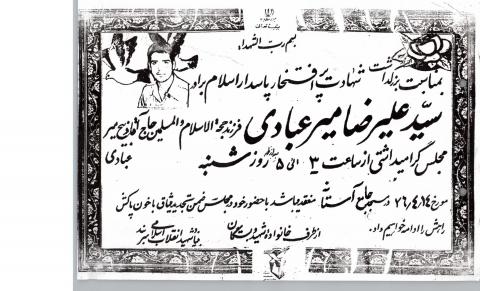 بسم رب الشهداء
بمناسبت بزرگداشت شهادت پر افتخار پاسدار اسلام برادر
سیّد علیرضا میرعبادی فرزند حجة الاسلام والمسلمین حاج آقا میر عبادی
مجلس گرامیداشتی از ساعت ۳ الی ۵ روز شنبه
مورخ ۲۶/۴/۱۴ در مسجد جامع آستانه منعقد میباشد با حضور خود در مجلس ضمن تجدید میثاق با خون پاکش
راهش را ادامه خواهیم داد.
از طرف خانواده شهید و بستگان
بنیاد شهید انقلاب اسلامی